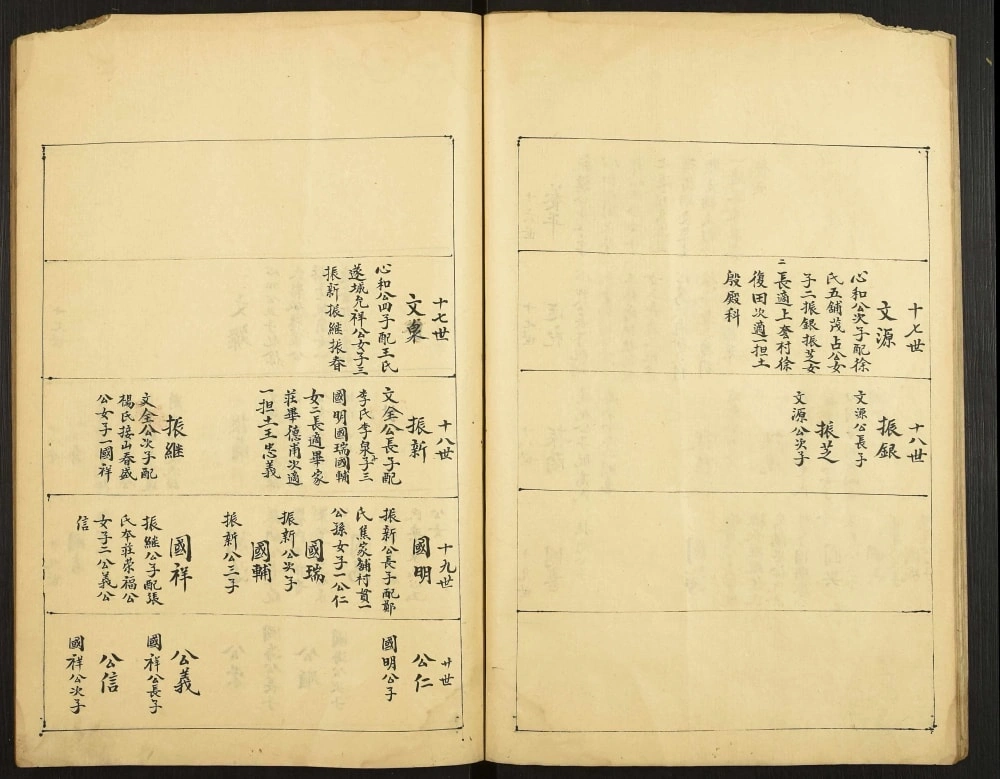 十七世
文源
心和公次子配徐
氏五舖茂占公女
子二振銀振芝女
二長適上夻村徐
復田次適一担土
殷殿科
十八世
振銀
文源公長子
振芝
文源公次子
十七世
文稟
心和公四子配王氏
遂城允祥公女子三
振新振維振春
十八世
振新
文全公長子配
李氏李泉子三
國明國瑞國輔
女二長適畢家
莊畢德甫次適
一担土王忠義
振維
文全公次子配
楊氏接山春盛
公女子一國祥
十九世
國明
振新公長子配鄭
氏焦家舖村貫一
公孫女子一公仁
國瑞
振新公次子
國輔
振新公三子
國祥
振維公子配張
氏本莊荣福公
女子二公義公
信
廿世
公仁
國明公子
公義
國祥公長子
公信
國祥公次子